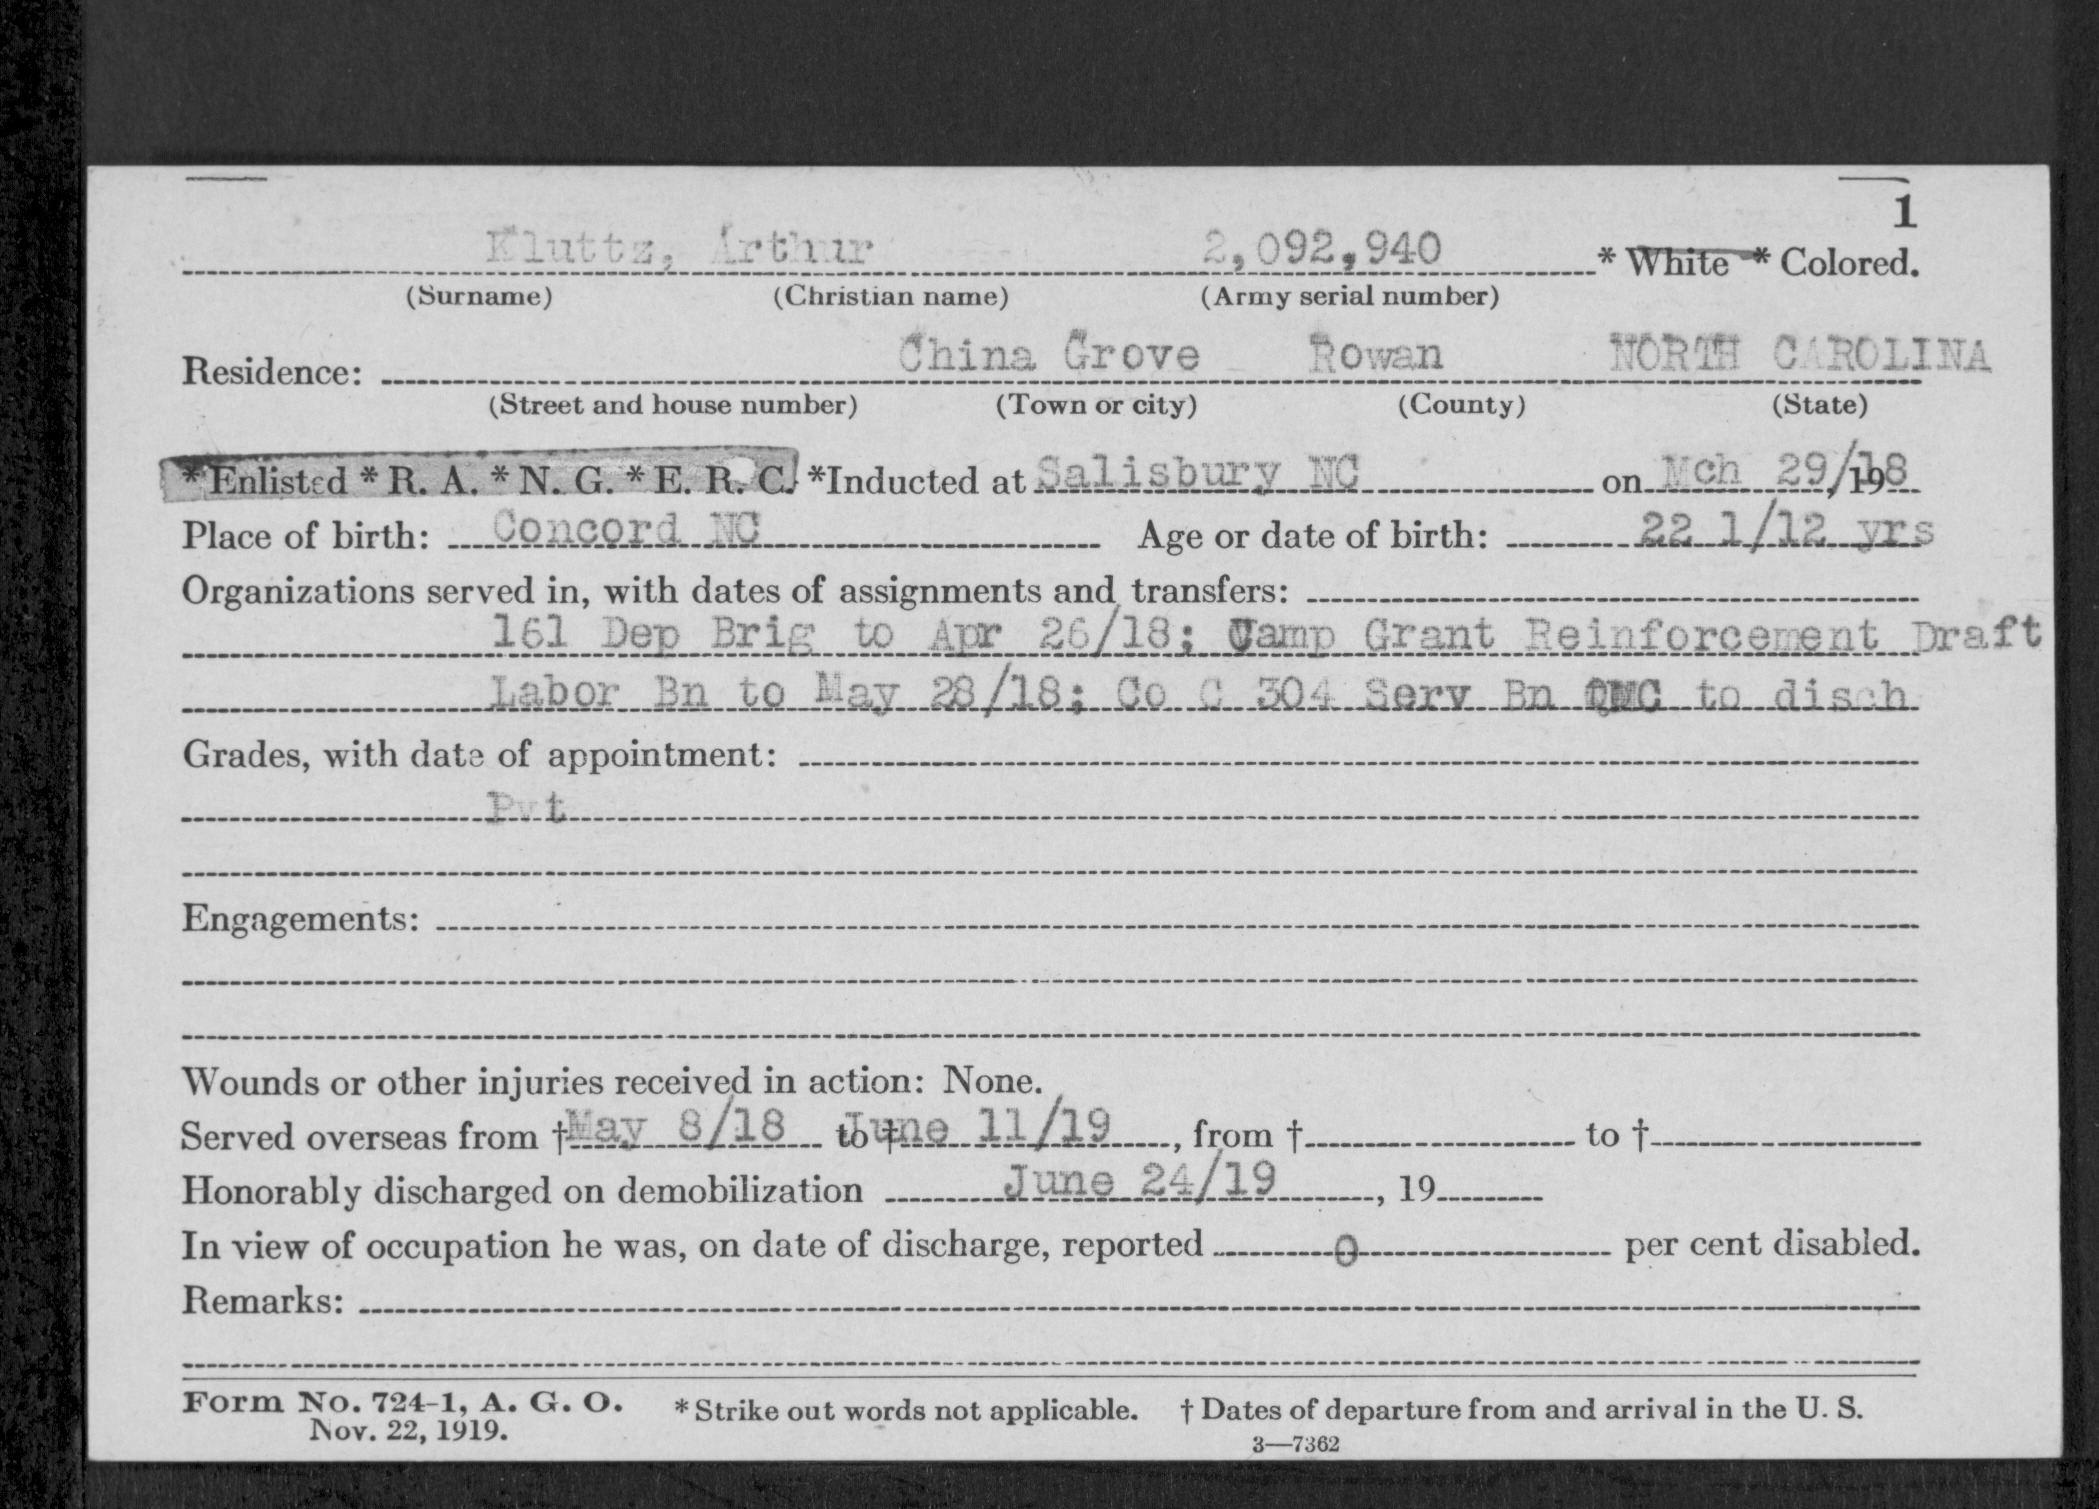 1
Kluttz, Arthur 2,092,940 * White * Colored.
(Surname) (Christian name) (Army serial number)
Residence: China Grove Rowan NORTH CAROLINA
(Street and house number) (Town or city) (County) (State)
*Enlisted *R. A. *N. G. *E. R. C. *Inducted at Salisbury NC on Mch 29/18, 19
Place of birth: Concord NC Age or date of birth: 22 1/12 yrs
Organizations served in, with dates of assignments and transfers:
161 Dep Brig to Apr 26/18; Camp Grant Reinforcement Draft
Labor Bn to May 28/18; Co C 304 Serv Bn QMC to disch
Grades, with date of appointment:
Pvt
Engagements:
Wounds or other injuries received in action: None.
Served overseas from † May 8/18 to † June 11/19, from † to †
Honorably discharged on demobilization June 24/19, 19
In view of occupation he was, on date of discharge, reported 0 per cent disabled.
Remarks:
Form No. 724-1, A. G. O. *Strike out words not applicable. † Dates of departure from and arrival in the U. S.
Nov. 22, 1919.
3—7362